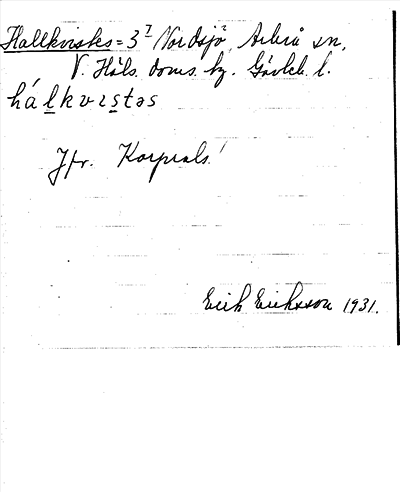 Hallkvistes = 3⁷ Nordsjö, Arbrå sn,
V. Häls. doms. hg. Gävleb. l.
hálkvɩstəs
Jfr. Korprals!
Erik Eriksson 1931.